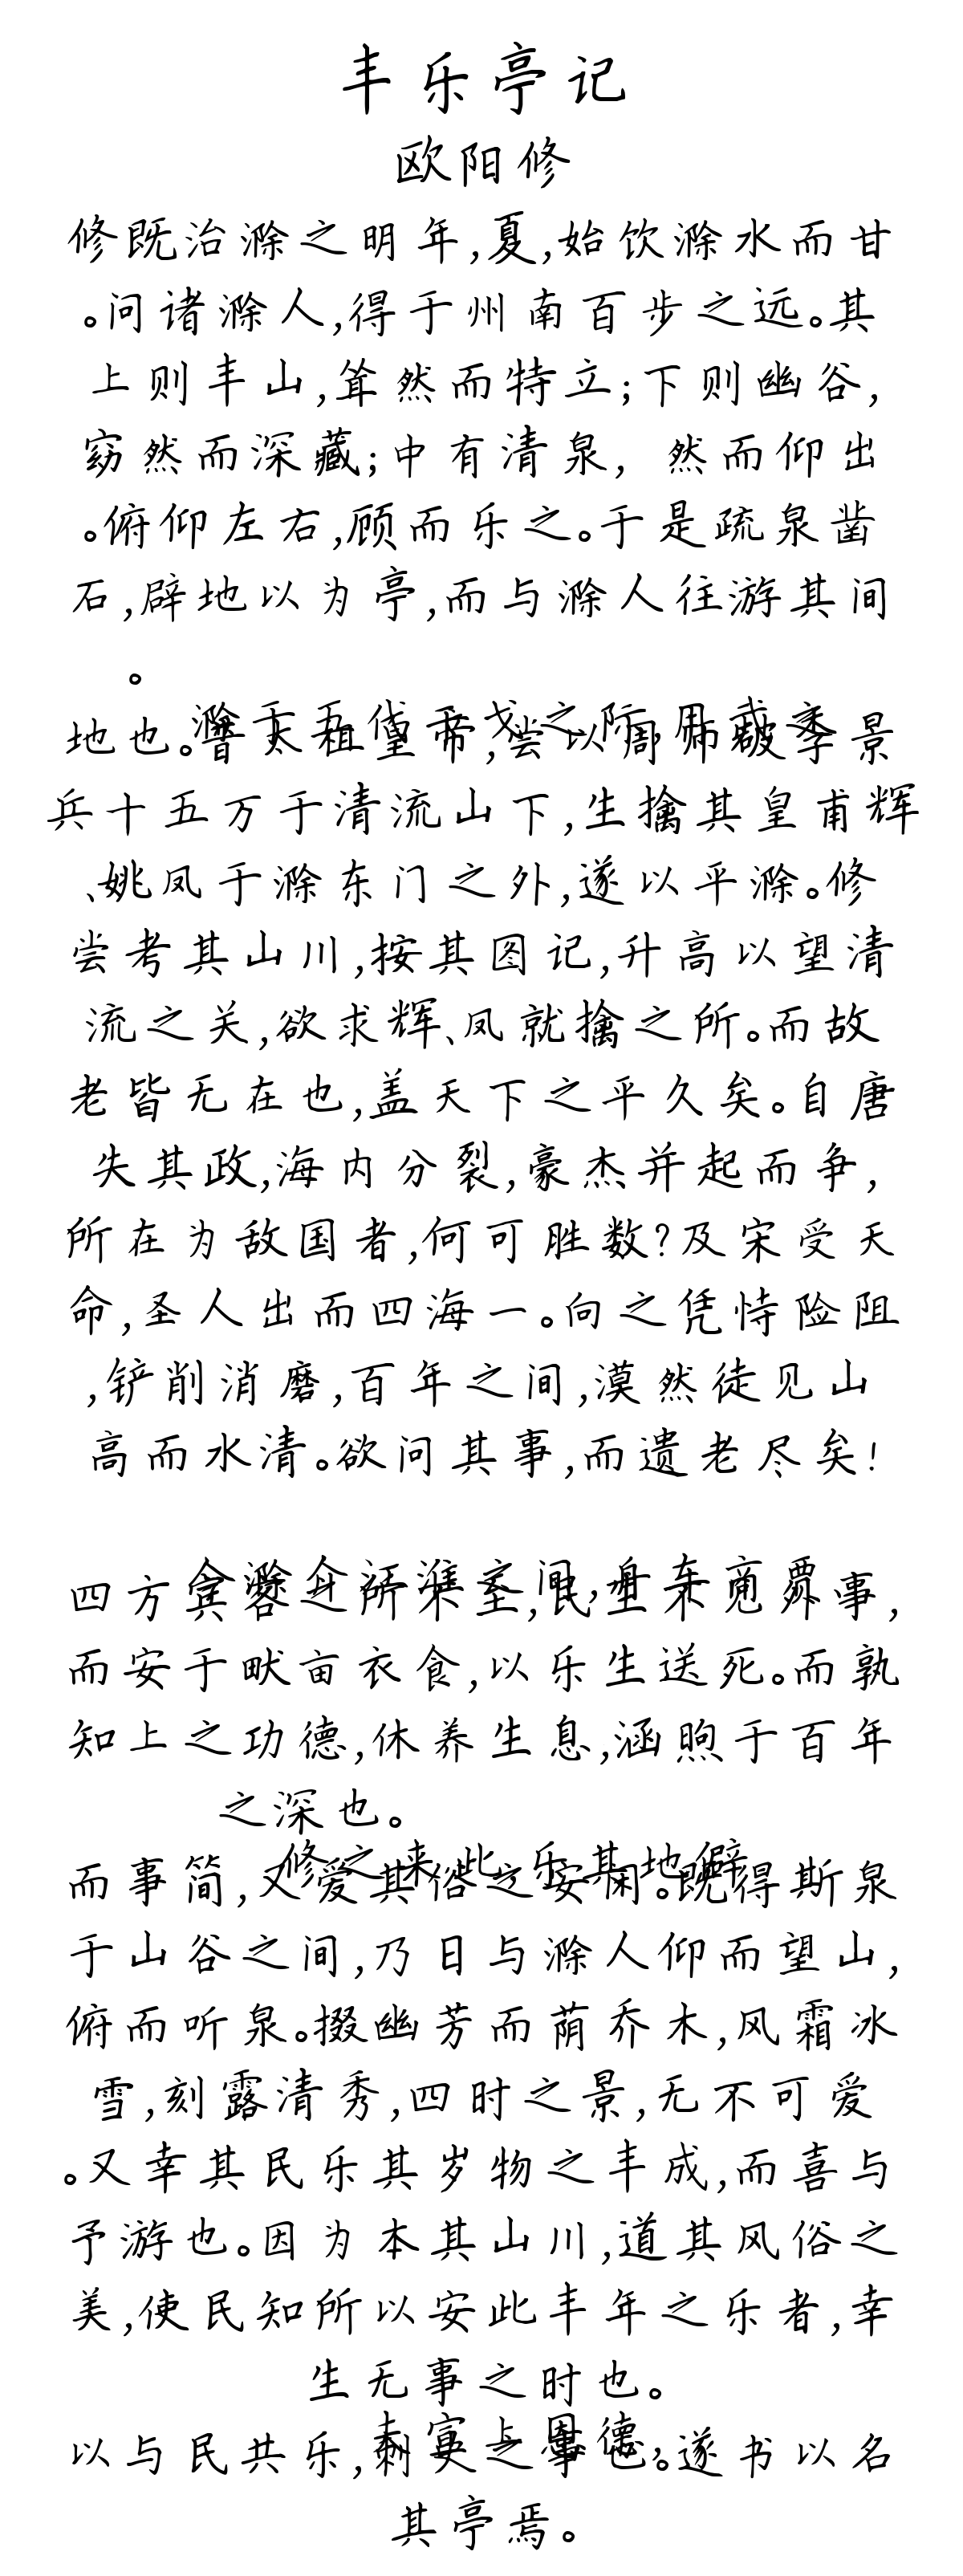 丰乐亭记
欧阳修
修既治滁之明年,夏,始饮滁水而甘
。问诸滁人,得于州南百步之远。其
上则丰山,耸然而特立;下则幽谷,
窈然而深藏;中有清泉, 然而仰出
。俯仰左右,顾而乐之。于是疏泉凿
石,辟地以为亭,而与滁人往游其间
。
滁于五代干戈之际,用武之
地也。昔太祖皇帝,尝以周师破李景
兵十五万于清流山下,生擒其皇甫辉
、姚凤于滁东门之外,遂以平滁。修
尝考其山川,按其图记,升高以望清
流之关,欲求辉、凤就擒之所。而故
老皆无在也,盖天下之平久矣。自唐
失其政,海内分裂,豪杰并起而争,
所在为敌国者,何可胜数?及宋受天
命,圣人出而四海一。向之凭恃险阻
,铲削消磨,百年之间,漠然徒见山
高而水清。欲问其事,而遗老尽矣!
今滁介江淮之间,舟车商贾、
四方宾客之所不至,民生不见外事,
而安于畎亩衣食,以乐生送死。而孰
知上之功德,休养生息,涵煦于百年
之深也。
修之来此,乐其地僻
而事简,又爱其俗之安闲。既得斯泉
于山谷之间,乃日与滁人仰而望山,
俯而听泉。掇幽芳而荫乔木,风霜冰
雪,刻露清秀,四时之景,无不可爱
。又幸其民乐其岁物之丰成,而喜与
予游也。因为本其山川,道其风俗之
美,使民知所以安此丰年之乐者,幸
生无事之时也。
夫宣上恩德,
以与民共乐,刺史之事也。遂书以名
其亭焉。